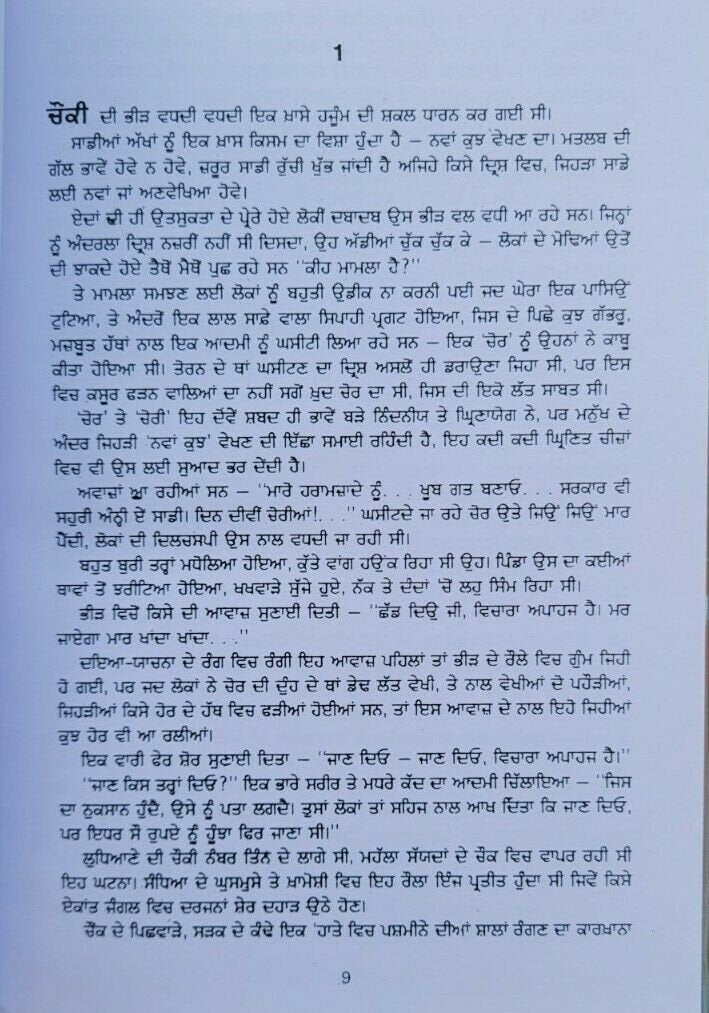 1
ਚੌਂਕੀ ਦੀ ਭੀੜ ਵਧਦੀ ਵਧਦੀ ਇਕ ਖ਼ਾਸੇ ਹਜੂਮ ਦੀ ਸ਼ਕਲ ਧਾਰਨ ਕਰ ਗਈ ਸੀ।
ਸਾਡੀਆਂ ਅੱਖਾਂ ਨੂੰ ਇਕ ਖ਼ਾਸ ਕਿਸਮ ਦਾ ਵਿਸ਼ਾ ਹੁੰਦਾ ਹੈ – ਨਵਾਂ ਕੁਝ ਵੇਖਣ ਦਾ। ਮਤਲਬ ਦੀ
ਗੱਲ ਭਾਵੇਂ ਹੋਵੇ ਨ ਹੋਵੇ, ਜ਼ਰੂਰ ਸਾਡੀ ਰੁੱਚੀ ਖੁੱਭ ਜਾਂਦੀ ਹੈ ਅਜਿਹੇ ਕਿਸੇ ਦ੍ਰਿਸ਼ ਵਿਚ, ਜਿਹੜਾ ਸਾਡੇ
ਲਈ ਨਵਾਂ ਜਾਂ ਅਣਵੇਖਿਆ ਹੋਵੇ।
ਏਦਾਂ ਦੀ ਹੀ ਉਤਸੁਕਤਾ ਦੇ ਪ੍ਰੇਰੇ ਹੋਏ ਲੋਕੀਂ ਦਬਾਦਬ ਉਸ ਭੀੜ ਵਲ ਵਧੀ ਆ ਰਹੇ ਸਨ। ਜਿਨ੍ਹਾਂ
ਨੂੰ ਅੰਦਰਲਾ ਦ੍ਰਿਸ਼ ਨਜ਼ਰੀਂ ਨਹੀਂ ਸੀ ਦਿਸਦਾ, ਉਹ ਅੱਡੀਆਂ ਚੁੱਕ ਚੁੱਕ ਕੇ – ਲੋਕਾਂ ਦੇ ਮੋਢਿਆਂ ਉਤੋਂ
ਦੀ ਝਾਕਦੇ ਹੋਏ ਤੈਥੋਂ ਮੈਥੋਂ ਪੁਛ ਰਹੇ ਸਨ ‘‘ਕੀਹ ਮਾਮਲਾ ਹੈ?’’
ਤੇ ਮਾਮਲਾ ਸਮਝਣ ਲਈ ਲੋਕਾਂ ਨੂੰ ਬਹੁਤੀ ਉਡੀਕ ਨਾ ਕਰਨੀ ਪਈ ਜਦ ਘੇਰਾ ਇਕ ਪਾਸਿਉਂ
ਟੁਟਿਆ, ਤੇ ਅੰਦਰੋਂ ਇਕ ਲਾਲ ਸਾਫ਼ੇ ਵਾਲਾ ਸਿਪਾਹੀ ਪ੍ਰਗਟ ਹੋਇਆ, ਜਿਸ ਦੇ ਪਿਛੇ ਕੁਝ ਗੱਭਰੂ,
ਮਜ਼ਬੂਤ ਹੱਥਾਂ ਨਾਲ ਇਕ ਆਦਮੀ ਨੂੰ ਘਸੀਟੀ ਲਿਆ ਰਹੇ ਸਨ – ਇਕ ‘ਚੋਰ’ ਨੂੰ ਉਹਨਾਂ ਨੇ ਕਾਬੂ
ਕੀਤਾ ਹੋਇਆ ਸੀ। ਤੋਰਨ ਦੇ ਥਾਂ ਘਸੀਟਣ ਦਾ ਦ੍ਰਿਸ਼ ਅਸਲੋਂ ਹੀ ਡਰਾਉਣਾ ਜਿਹਾ ਸੀ, ਪਰ ਇਸ
ਵਿਚ ਕਸੂਰ ਫੜਨ ਵਾਲਿਆਂ ਦਾ ਨਹੀਂ ਸਗੋਂ ਖ਼ੁਦ ਚੋਰ ਦਾ ਸੀ, ਜਿਸ ਦੀ ਇਕੋ ਲੱਤ ਸਾਬਤ ਸੀ।
‘ਚੋਰ’ ਤੇ ‘ਚੋਰੀ’ ਇਹ ਦੋਂਵੇਂ ਸ਼ਬਦ ਹੀ ਭਾਵੇਂ ਬੜੇ ਨਿੰਦਨੀਯ ਤੇ ਘ੍ਰਿਣਾਯੋਗ ਨੇ, ਪਰ ਮਨੁੱਖ ਦੇ
ਅੰਦਰ ਜਿਹੜੀ ‘ਨਵਾਂ ਕੁਝ’ ਵੇਖਣ ਦੀ ਇੱਛਾ ਸਮਾਈ ਰਹਿੰਦੀ ਹੈ, ਇਹ ਕਦੀ ਕਦੀ ਘ੍ਰਿਣਿਤ ਚੀਜ਼ਾਂ
ਵਿਚ ਵੀ ਉਸ ਲਈ ਸੁਆਦ ਭਰ ਦੇਂਦੀ ਹੈ।
ਅਵਾਜ਼ਾਂ ਆ ਰਹੀਆਂ ਸਨ – ‘‘ਮਾਰੋ ਹਰਾਮਜ਼ਾਦੇ ਨੂੰ. . . ਖ਼ੂਬ ਗਤ ਬਣਾਓ. . . ਸਰਕਾਰ ਵੀ
ਸਹੁਰੀ ਅੰਨ੍ਹੀ ਏਂ ਸਾਡੀ। ਦਿਨ ਦੀਵੀਂ ਚੋਰੀਆਂ!. . .’’ ਘਸੀਟਦੇ ਜਾ ਰਹੇ ਚੋਰ ਉਤੇ ਜਿਉਂ ਜਿਉਂ ਮਾਰ
ਪੈਂਦੀ, ਲੋਕਾਂ ਦੀ ਦਿਲਚਸਪੀ ਉਸ ਨਾਲ ਵਧਦੀ ਜਾ ਰਹੀ ਸੀ।
ਬਹੁਤ ਬੁਰੀ ਤਰ੍ਹਾਂ ਮਧੋਲਿਆ ਹੋਇਆ, ਕੁੱਤੇ ਵਾਂਗ ਹਉਂਕ ਰਿਹਾ ਸੀ ਉਹ। ਪਿੰਡਾ ਉਸ ਦਾ ਕਈਆਂ
ਥਾਵਾਂ ਤੋਂ ਝਰੀਟਿਆ ਹੋਇਆ, ਖਖਵਾੜੇ ਸੁੱਜੇ ਹੁਏ, ਨੱਕ ਤੇ ਦੰਦਾਂ ’ਚੋਂ ਲਹੂ ਸਿੰਮ ਰਿਹਾ ਸੀ।
ਭੀੜ ਵਿਚੋਂ ਕਿਸੇ ਦੀ ਆਵਾਜ਼ ਸੁਣਾਈ ਦਿਤੀ – ‘‘ਛੱਡ ਦਿਉ ਜੀ, ਵਿਚਾਰਾ ਅਪਾਹਜ ਹੈ। ਮਰ
ਜਾਏਗਾ ਮਾਰ ਖਾਂਦਾ ਖਾਂਦਾ. . .’’
ਦਇਆ-ਯਾਚਨਾ ਦੇ ਰੰਗ ਵਿਚ ਰੰਗੀ ਇਹ ਆਵਾਜ਼ ਪਹਿਲਾਂ ਤਾਂ ਭੀੜ ਦੇ ਰੌਲੇ ਵਿਚ ਗੁੰਮ ਜਿਹੀ
ਹੋ ਗਈ, ਪਰ ਜਦ ਲੋਕਾਂ ਨੇ ਚੋਰ ਦੀ ਦੁੰਹ ਦੇ ਥਾਂ ਡੇਢ ਲੱਤ ਵੇਖੀ, ਤੇ ਨਾਲ ਵੇਖੀਆਂ ਦੋ ਪਹੌੜੀਆਂ,
ਜਿਹੜੀਆਂ ਕਿਸੇ ਹੋਰ ਦੇ ਹੱਥ ਵਿਚ ਫੜੀਆਂ ਹੋਈਆਂ ਸਨ, ਤਾਂ ਇਸ ਆਵਾਜ਼ ਦੇ ਨਾਲ ਇਹੋ ਜਿਹੀਆਂ
ਕੁਝ ਹੋਰ ਵੀ ਆ ਰਲੀਆਂ।
ਇਕ ਵਾਰੀ ਫੇਰ ਸ਼ੋਰ ਸੁਣਾਈ ਦਿਤਾ – ‘‘ਜਾਣ ਦਿਓ – ਜਾਣ ਦਿਓ, ਵਿਚਾਰਾ ਅਪਾਹਜ ਹੈ।’’
‘‘ਜਾਣ ਕਿਸ ਤਰ੍ਹਾਂ ਦਿਓ?’’ ਇਕ ਭਾਰੇ ਸਰੀਰ ਤੇ ਮਧਰੇ ਕੱਦ ਦਾ ਆਦਮੀ ਚਿੱਲਾਇਆ – ‘‘ਜਿਸ
ਦਾ ਨੁਕਸਾਨ ਹੁੰਦੈ, ਉਸੇ ਨੂੰ ਪਤਾ ਲਗਦੈ। ਤੁਸਾਂ ਲੋਕਾਂ ਤਾਂ ਸਹਿਜ ਨਾਲ ਆਖ ਦਿੱਤਾ ਕਿ ਜਾਣ ਦਿਓ,
ਪਰ ਇਧਰ ਸੌ ਰੁਪਏ ਨੂੰ ਹੂੰਝਾ ਫਿਰ ਜਾਣਾ ਸੀ।’’
ਲੁਧਿਆਣੇ ਦੀ ਚੌਂਕੀ ਨੰਬਰ ਤਿੰਨ ਦੇ ਲਾਗੇ ਸੀ, ਮਹੱਲਾ ਸੱਯਦਾਂ ਦੇ ਚੌਕ ਵਿਚ ਵਾਪਰ ਰਹੀ ਸੀ
ਇਹ ਘਟਨਾ। ਸੰਧਿਆ ਦੇ ਘੁਸਮੁਸੇ ਤੇ ਖ਼ਾਮੋਸ਼ੀ ਵਿਚ ਇਹ ਰੌਲਾ ਇੰਜ ਪ੍ਰਤੀਤ ਹੁੰਦਾ ਸੀ ਜਿਵੇਂ ਕਿਸੇ
ਏਕਾਂਤ ਜੰਗਲ ਵਿਚ ਦਰਜਨਾਂ ਸ਼ੇਰ ਦਹਾੜ ਉਠੇ ਹੋਣ।
ਚੌਂਕ ਦੇ ਪਿਛਵਾੜੇ, ਸੜਕ ਦੇ ਕੰਢੇ ਇਕ ’ਹਾਤੇ ਵਿਚ ਪਸ਼ਮੀਨੇ ਦੀਆਂ ਸ਼ਾਲਾਂ ਰੰਗਣ ਦਾ ਕਾਰਖ਼ਾਨਾ
9